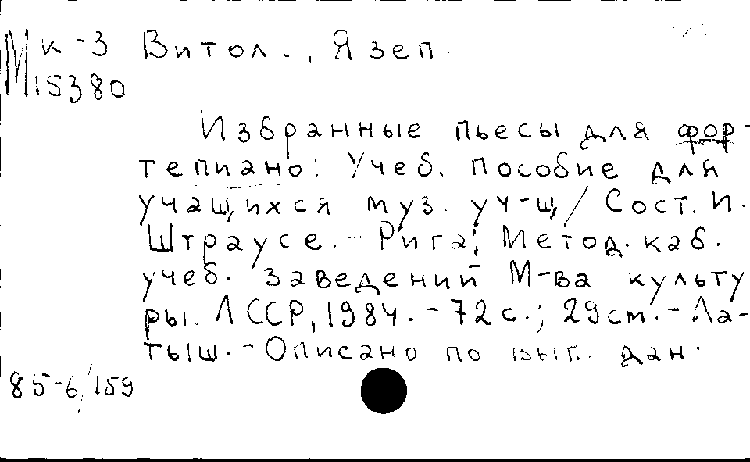 Мк-3 Витол., Язеп.
М15380
Избранные пьесы для фор-
тепиано: Учеб. пособие для
учащихся муз. уч-щ / Сост. И.
Штраусе. - Рига: Метод. каб.
учеб. заведений М-ва культу
ры. ЛССР, 1984. - 72 с.; 29 см. - Ла-
тыш. - Описано по вып. дан.
85-6/159